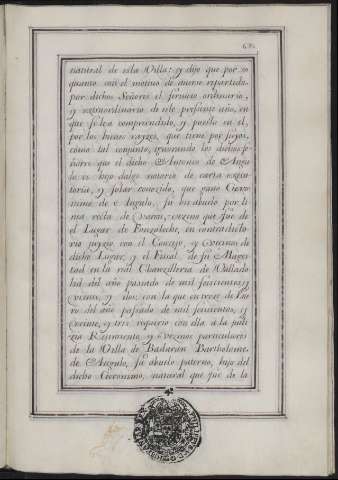 natural de esta Villa: y dijo que por
quanto con el motivo de averse repartido
por dichos Señores el servicio ordinario,
y extraordinario de este presente año, en
que se lea comprendido, y puesto en el,
por los bienes rayzes, que tiene por suyos,
como tal conjunto, ignorando los dichos se-
ñores que el dicho Antonio de Angu-
lo es hijo dalgo notorio de carta execu-
toria, y solar conozido, que gano Gero-
nimo de Angulo, su bisabuelo por li-
nea recta de varon, vezino que fue de
el Lugar de Fonzoleche, en contradicto-
rio juyzio con el Concejo, y vecinos de
dicho Lugar, y el Fiscal de su Mages-
tad en la real Chanzilleria de Vallado-
lid del año pasado de mil seiscientos y
veinte, y dos, con la que en treze de
ro del año passado de mil seiscientos, y
veinte, y tres requirio con ella a la justi-
zia Reximiento, y vezinos particulares
de la Villa de Badaran Bartholome
de Angulo, su abuelo paterno, hijo del
dicho Geronimo, natural que fue de la